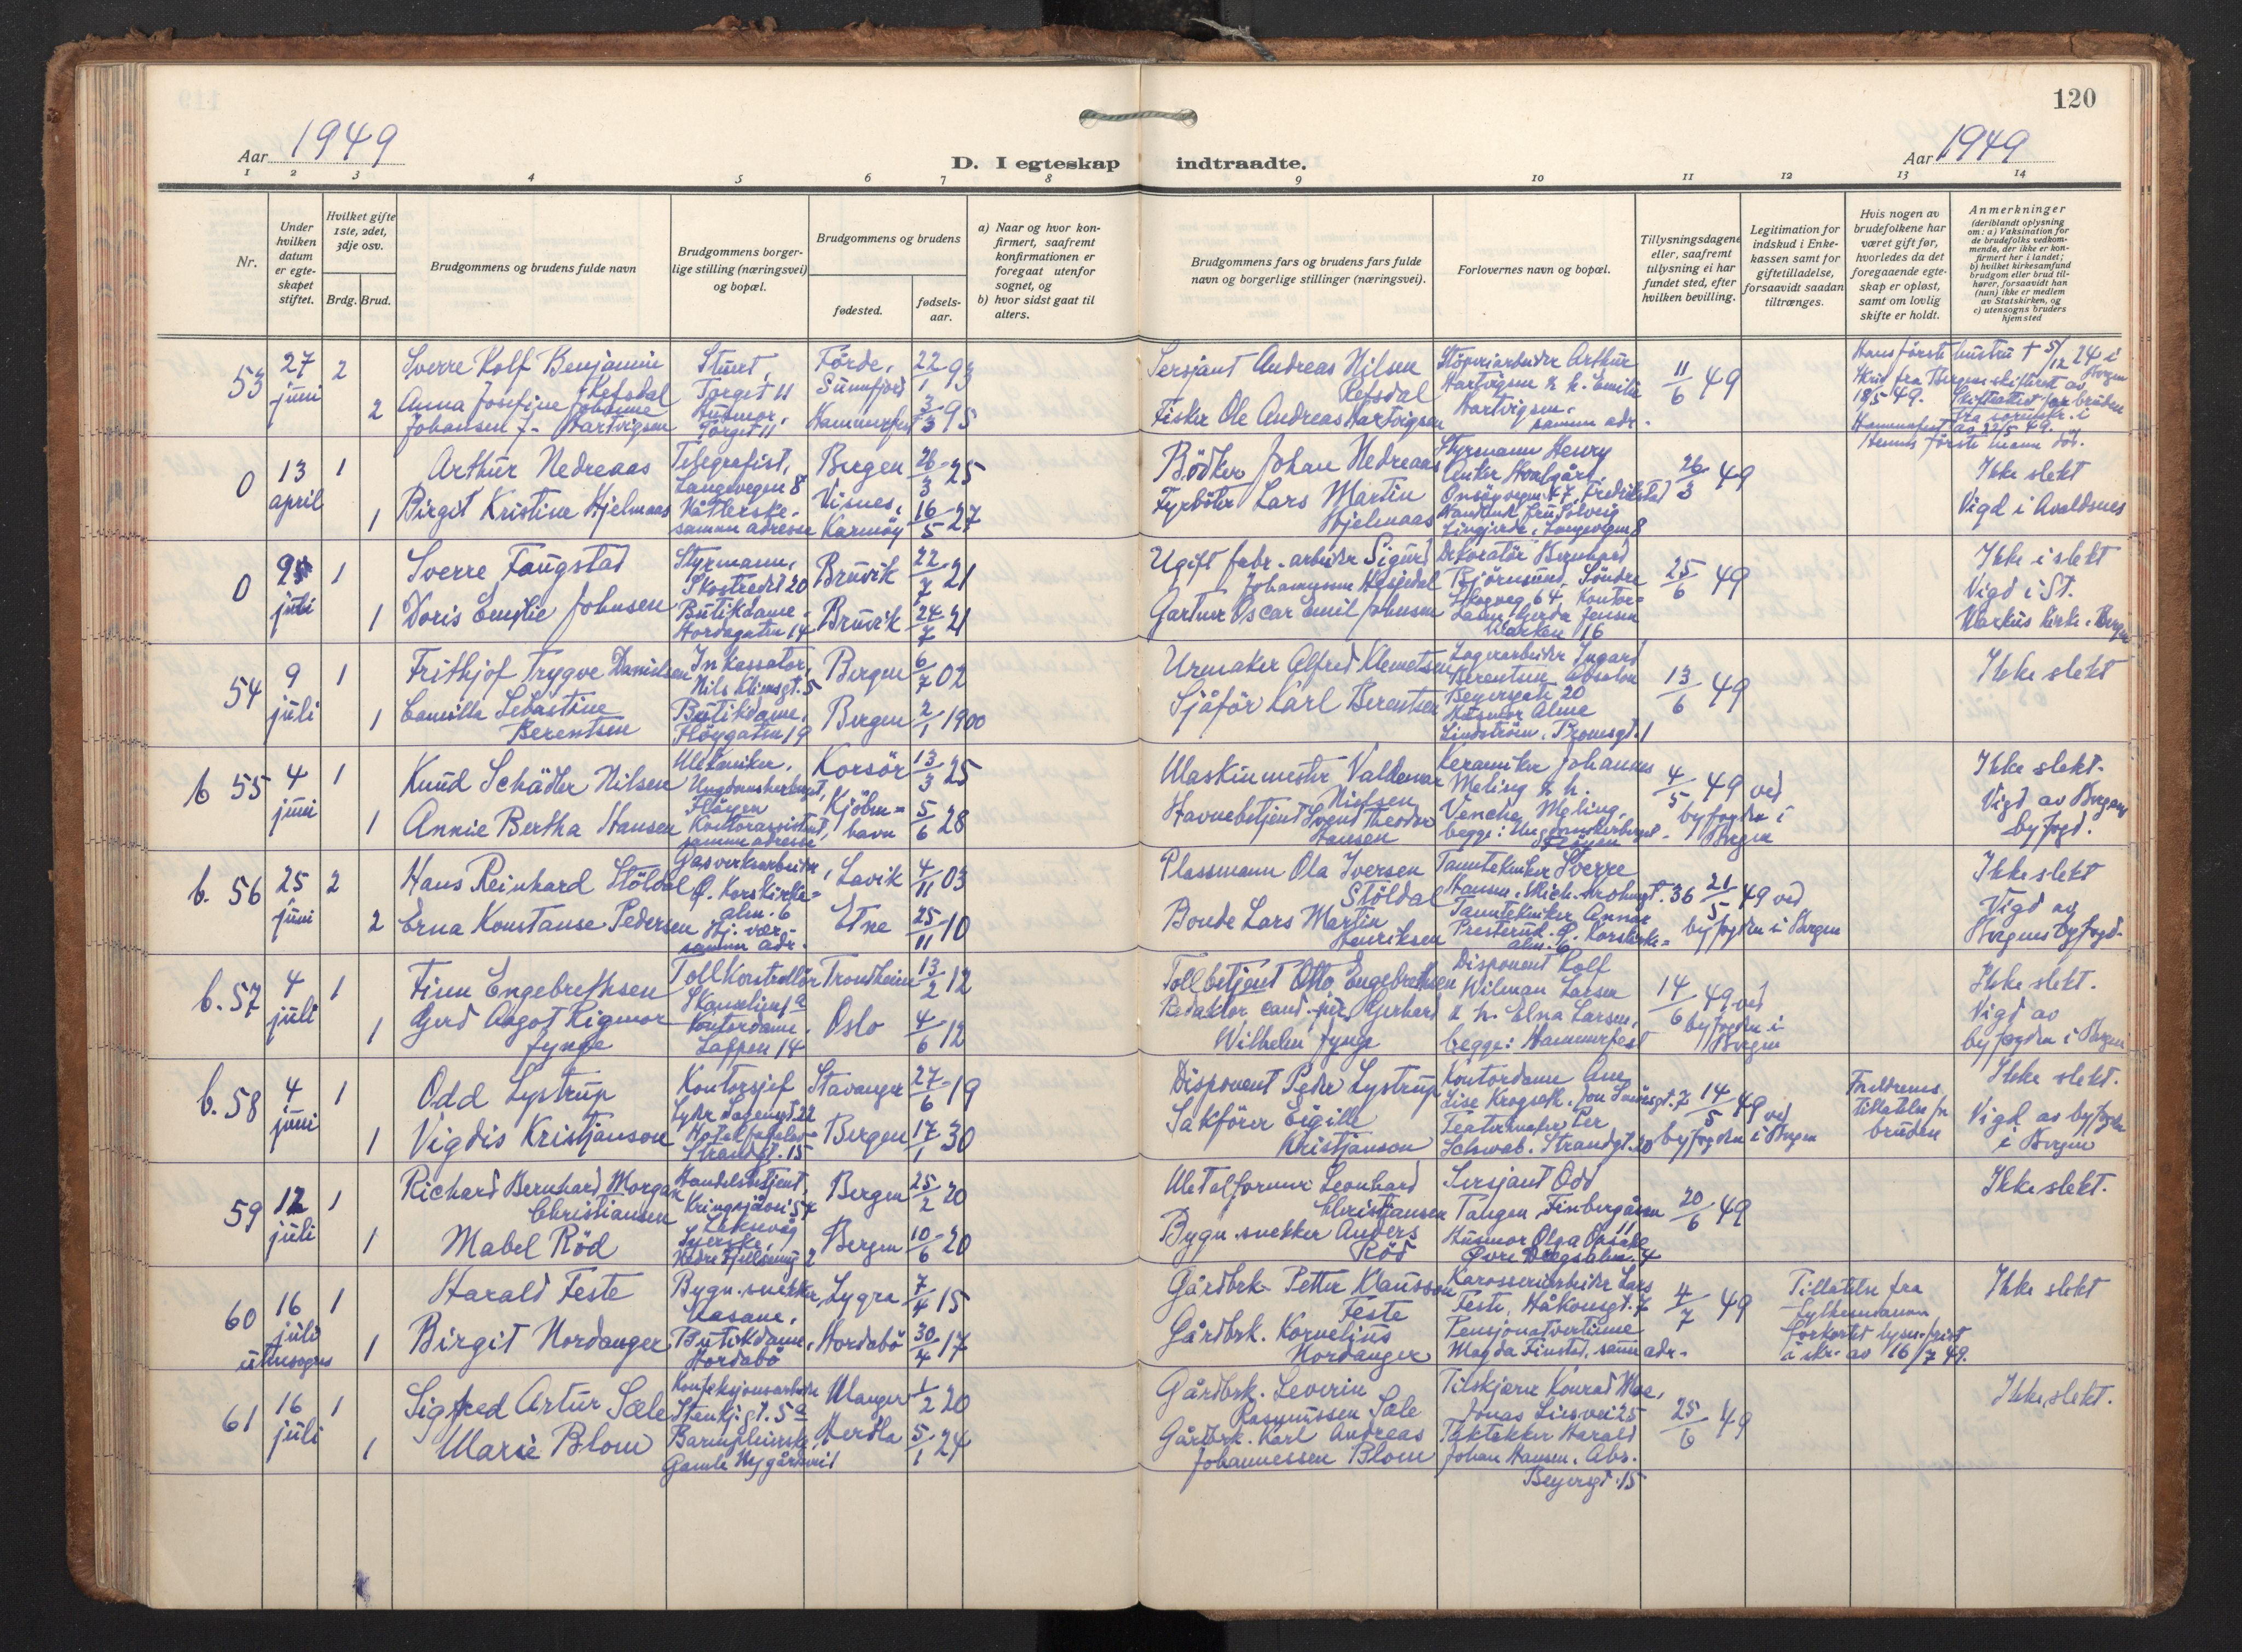 120
Aar 1949
D. I egteskap indtraadte.
Aar 1949
1 2 3 4 5 6 7 8 9 10 11 12 13 14
Nr.
Under hvilken datum er egteskapet stiftet.
Hvilket gifte 1ste, 2det, 3dje osv.
Brdg. Brud.
Brudgommens og brudens fulde navn
Brudgommens borgerlige stilling (næringsvei) og bopæl.
Brudgommens og brudens
fødested.
fødselsaar.
a) Naar og hvor konfirmert, saafremt konfirmationen er foregaat utenfor sognet, og
b) hvor sidst gaat til alters.
Brudgommens fars og brudens fars fulde navn og borgerlige stillinger (næringsvei).
Forlovernes navn og bopæl.
Tillysningsdagene eller, saafremt tillysning ei har fundet sted, efter hvilken bevilling.
Legitimation for indskud i Enkekassen samt for giftetilladelse, forsaavidt saadan tiltrænges.
Hvis nogen av brudefolkene har været gift før, hvorledes da det foregaaende egteskap er opløst, samt om lovlig skifte er holdt.
Anmerkninger
(deriblandt oplysning om: a) Vaksination for de brudefolks vedkommende, der ikke er konfirmert her i landet;
b) hvilket kirkesamfund brudgom eller brud tilhører, forsaavidt han (hun) ikke er medlem av Statskirken, og
c) utensogns bruders hjemsted
53 27 juni 2 Sverre Rolf Benjamin Refsdal Stuert, Torget 11 Førde, Sunnfjord 22/1 93 Sersjant Andreas Nilsen Refsdal Støperiarbeider Arthur Hartvigsen & h. Emilie Hartvigsen, samme adr. 11/6 49 Hans første hustru † 5/12 24 i Bergen
2 Anna Josefine Johanne Johansen f. Hartvigsen Husmor, Torget 11 Hammerfest 3/3 95 Fisker Ole Andreas Hartvigsen Skifteattest for bruden fra sorenskr. i Hammerfest av 22/5 49. Hennes første mann død.
0 13 april 1 Arthur Nedreaas Telegrafist, Langevegen 8 Bergen 26/3 25 Bødker Johan Nedreaas Styrmann Henry Anker Hvalgård Onsøyvegen 47, Fredrikstad 26/3 49 Ikke slekt
1 Birgit Kristine Hjelmaas samme adresse Visnes, Karmøy 16/5 27 Fyrbøter Lars Martin Hjelmaas Fru Solveig Langevegen 8 Vigd i Avaldsnes
0 9 juli 1 Sverre Faugstad Styrmann, Skostredet 20 Bruvik 22/7 21 Ugift fabr. arbeider Sigurd Dekoratør Bernhard Bjørnsund, Søndre Skogveg 64 25/6 49 Ikke i slekt
1 Doris Emilie Johnsen Butikdame, Hordagaten 14 Bruvik 24/7 21 Gartner Oscar Emil Johnsen Kontordame Gerda Jensen Marken 16 Vigd i St. Markus kirke. Bergen
54 9 juli 1 Frithjof Trygve Danielsen Inkassator, Nils Klimsgt. 5 Bergen 6/7 02 Urmaker Alfred Klemetsen Lagerarbeider Ingard Berentsen Absalon Beyersgate 20 13/6 49 Ikke slekt
1 Camilla Sebastine Berentsen Butikdame, Fløygaten 19 Bergen 2/1 1900 Sjåfør Karl Berentsen Husmor Alma Lindstrøm. Bromsgt. 1
b 55 4 juni 1 Knud Schädler Nilsen Mekaniker, Ungdomsherberget, Fløyen Korsør 13/3 25 Maskinmester Valdemar Nielsen Keramiker Johannes Meling & h. 4/5 49 ved byfogden i Bergen Ikke slekt.
1 Annie Bertha Hansen Kontorassistent, samme adresse Kjøbenhavn 5/6 28 Havnebetjent Svend Theodor Hansen Venche Meling, begge: Ungdomsherberget. Fløyen Vigd av Bergens byfogd.
b. 56 25 juni 2 Hans Reinhard Støldal Gasverksarbeider, Ø. Korskirkealm. 6 Lavik 4/11 03 Plassmann Ola Iversen Støldal Tanntekniker Sverre Hansen, Mich. Krohnsgt. 36 21/5 49 ved byfogden i Bergen Ikke slekt
2 Erna Konstanse Pedersen Hj. vær. samme adr. Etne 25/11 10 Bonde Lars Martin Henriksen Tanntekniker Annar Presterud. Ø. Korskirkealm. 6 Vigd av Bergens byfogd.
b. 57 4 juli 1 Finn Engebrethsen Tollkontrollør Skanselien 1a Trondheim 13/2 12 Tollbetjent Otto Engebrethsen Disponent Rolf Wilman Larsen 14/6 49 ved byfogden i Bergen Ikke slekt.
1 Gerd Aagot Rigmor Jynge Kontordame. Lappen 14 Oslo 4/6 12 Redaktør cand. jur. Gerhard Wilhelm Jynge & h. Elna Larsen, begge: Hammerfest Vigd av byfogden i Bergen
b. 58 4 juni 1 Odd Lystrup Kontorsjef Lyder Sagengt. 22 Stavanger 27/6 19 Disponent Peder Lystrup Kontordame Ane Lise Krogseth. 14/5 49 ved byfogden i Bergen Foreldrenes tillatelse for bruden Ikke slekt.
1 Vigdis Kristjanson Strandgt. 15 Bergen 17/1 30 Sakfører Eigille Kristjanson Teatermaler Per Schwab. Strandgt. 20 Vigd av byfogden i Bergen
59 12 juli 1 Richard Bernhard Morgan Christiansen Handelsbetjent, Kringsjåvei 54 Laksevåg Bergen 25/2 20 Metalformer Leonhard Christiansen Sersjant Odd Tangen, Finbergåsen 11 20/6 49 Ikke slekt.
1 Mabel Rød Syerske, Nedre Fjellsmug 2 Bergen 10/6 20 Bygn. snekker Anders Rød Husmor Olga Øvre Dregsalm. 4
60 16 juli utensogns 1 Harald Feste Bygn. snekker, Aasane, Lygra 7/4 15 Gårdbrk. Petter Klausson Feste Karosseriarbeider Lars Feste, Håkonsgt. 7 4/7 49 Tillatelse fra Fylkesmannen forkortet lysn. frist i skr. av 16/7 49. Ikke slekt
1 Birgit Nordanger Butikdame, Hordabø Hordabø 30/4 17 Gårdbrk. Kornelius Nordanger Pensjonatvertinne Magda Finstad, samme adr.
61 16 juli 1 Sigfred Artur Sæle Konfeksjonsarbeider Stenkj.gt. 5a Manger 1/2 20 Gårdbrk. Severin Rasmussen Sæle Tilskjærer Konrad Moe, Jonas Liesvei 25 25/6 49 Ikke slekt.
1 Marie Blom Barnepleierske, Gamle Nygårdsvei 1 Herdla 5/1 24 Gårdbrk. Karl Andreas Johannessen Blom Taktekker Harald Johan Hansen. Abs. Beyersgt. 15